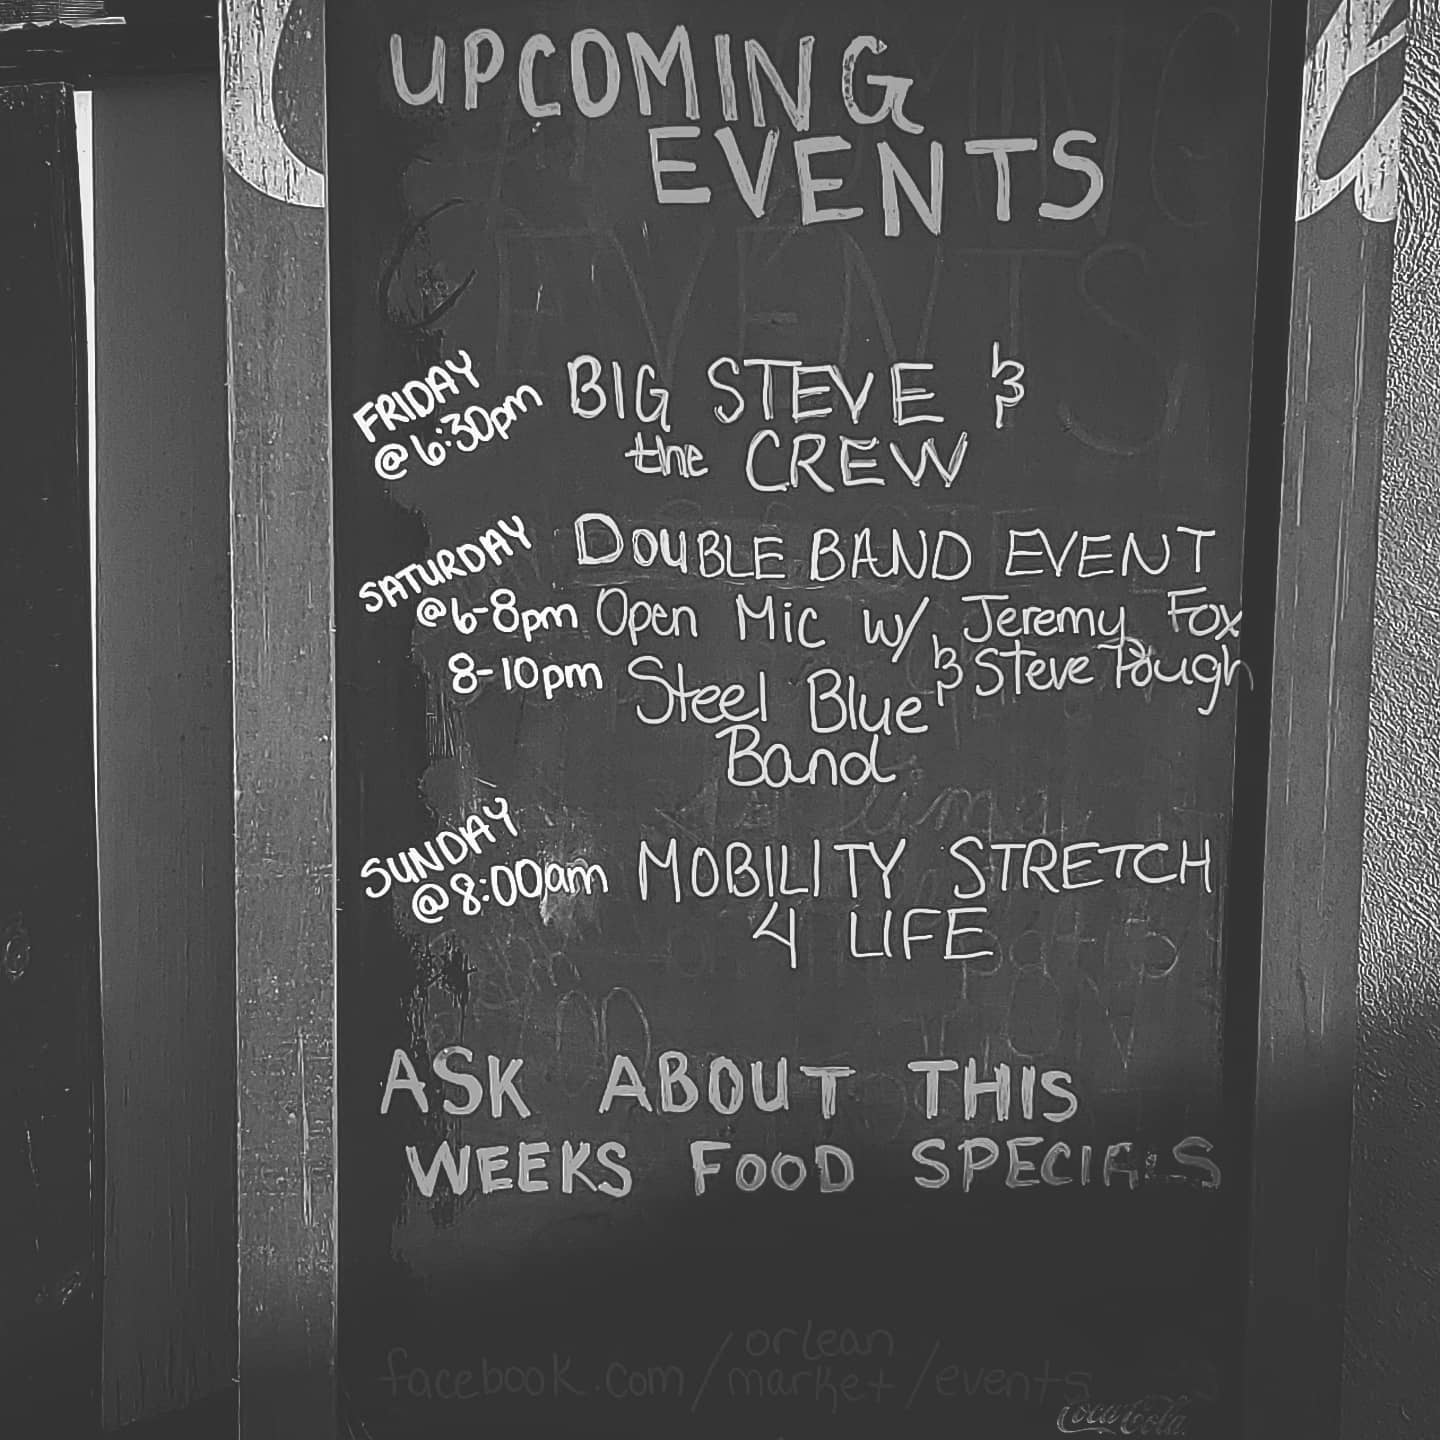 UPCOMING
EVENTS
FRIDAY
@ 6:30pm
BIG STEVE &
the CREW
SATURDAY
DOUBLE BAND EVENT
@6-8pm Open Mic w/ Jeremy Fox
& Steve Pough
8-10pm Steel Blue
Band
SUNDAY
@ 8:00am
MOBILITY STRETCH
4 LIFE
ASK ABOUT THIS
WEEKS FOOD SPECIALS
facebook.com/orlean market/events
Coca-Cola